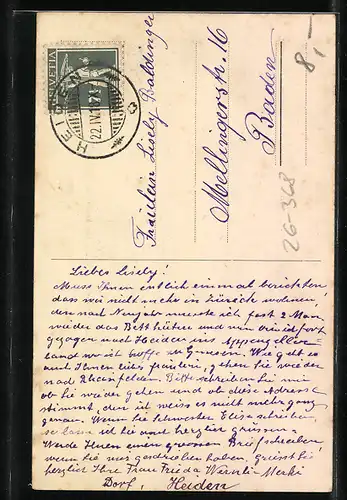 HELVETIA
HEIDEN
22.IV.
8,-
Fräulein Lisely Baldinger
Mellingerstr. 16
Baden
26-368
Liebes Lisely!
Muss Ihnen entlich einmal berichten
dass wir nicht mehr in Zürich wohnen,
den nach Neujahr musste ich fast 2 Mon.
wieder das Bett hüten und nun sind fort
gezogen nach Heiden ins Appenzeller-
land wo ich hoffe zu Genesen. Wie geht es
auch Ihnen liebes Fräulein, gehen Sie wieder
nach Rheinfelden. Bitte schreiben Sie mir
ob Sie wieder gehen und ob diese Adresse
stimmt, den ich weiss es nicht mehr ganz
genau. Wenn Sie Schwester Elise schreiben,
so lass ich Sie auch herzlich grüssen.
Werde Ihnen einen grossen Brief schreiben
wenn Sie mir geschrieben haben, grüsst Sie
herzlich Ihre Frau Frieda Wernli-Merki
Dorf, Heiden